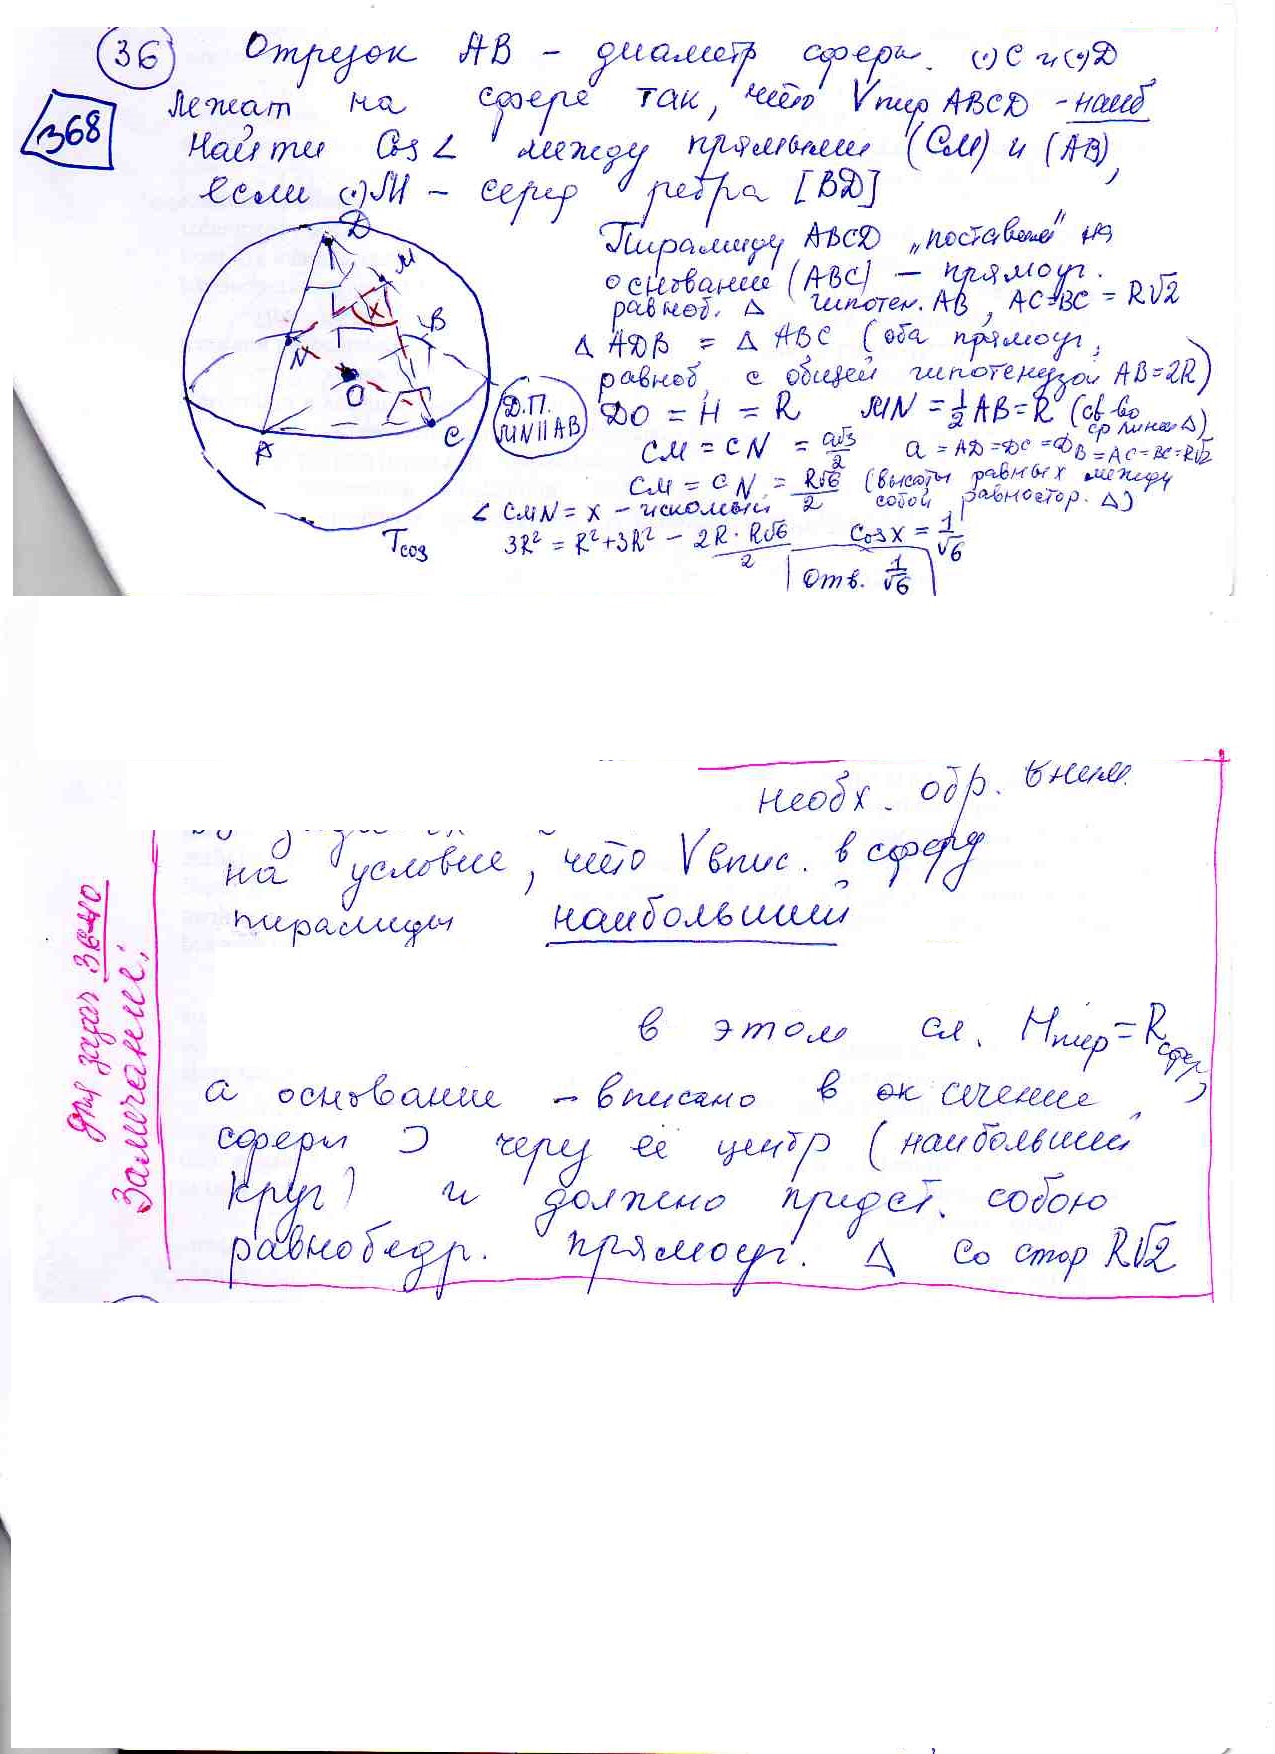 36 Отрезок AB – диаметр сферы. (·)C и (·)D
368 лежат на сфере так, что Vпир ABCD – наиб
Найти Cos∠ между прямыми (CM) и (AB),
если (·)M – серед ребра [BD]
D
M
X
N
B
O
A
C
Tcos
Д.П.
MN||AB
Пирамиду ABCD „поставим" на
основание (ABC) – прямоуг.
равноб. Δ гипотен. AB, AC=BC = R√2
Δ ADB = Δ ABC (оба прямоуг,
равноб, с общей гипотенузой AB=2R)
DO = H = R MN = 1/2 AB = R (св-во
ср линии Δ)
CM = CN = a√3/2 a = AD = DC = DB = AC = BC = R√2
CM = CN = R√6/2 (высоты равных между
собой равностор. Δ)
∠ CMN = x – искомый
3R² = R² + 3R² – 2R·R√6/2 Cos x = 1/√6
Отв. 1/√6
необх. обр. вним.
на условие, что Vвпис. в сферу
пирамиды наибольший
в этом сл. Hпир = Rсфер,
а основание – вписано в ок сечение
сферы ⊃ через её центр (наибольший
круг) и должно предст. собою
равнобедр. прямоуг. Δ со стор R√2
для задач 36-40
Замечание: